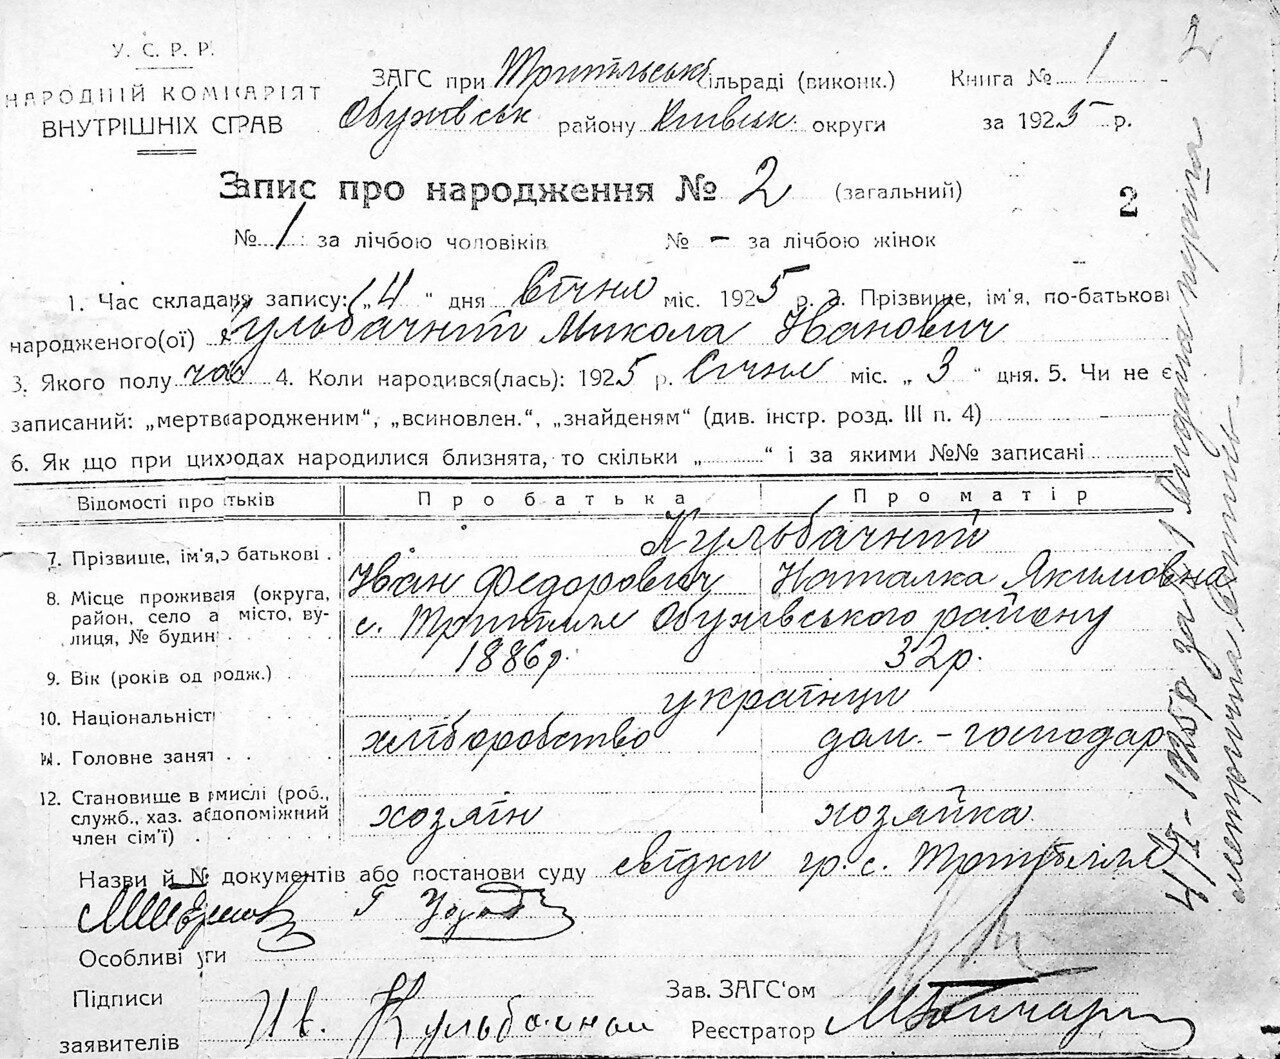 У. С. Р. Р.
НАРОДНІЙ КОМІСАРІЯТ
ВНУТРІШНІХ СПРАВ
ЗАГС при Трипільські сільраді (виконк.)
Обухівськ району Київськ. округи
Книга № 1
за 1925 р.
2
Запис про народження № 2 (загальний)
2
№ 1 за лічбою чоловіків № – за лічбою жінок
1. Час складаня запису: „4“ дня Січня міс. 1925 р. 2. Прізвище, ім'я, по-батькові
народженого(ої) Кульбачний Микола Іванович
3. Якого полу чол 4. Коли народився(лась): 1925 р. Січня міс. „3“ дня. 5. Чи не є
записаний: „мертвонародженим“, „всиновлен.“, „знайденям“ (див. інстр. розд. III п. 4) –
6. Як що при цих родах народилися близнята, то скільки „ “ і за якими №№ записані
Відомості про батьків Про батька Про матір
Кульбачний
7. Прізвище, ім'я, по батькові
Іван Федорович Наталка Якимовна
8. Місце проживаня (округа, район, село або місто, вулиця, № будин
с. Трипілля Обухівського району
9. Вік (років од родж.) 1886 р. 32 р.
10. Національність українці
11. Головне занят хліборобство дом. – господар
12. Становище в промислі (роб., служб., хаз. або допоміжний член сім'ї) хозяїн хозяйка
Назви й № документів або постанови суду свідки гр. с. Трипілля
Особливі уваги
Підписи
заявителів Ив. Кульбачной
Зав. ЗАГС'ом
Реєстратор
4/I – 1925 р за № 1 Видана перша
метрична витпись –